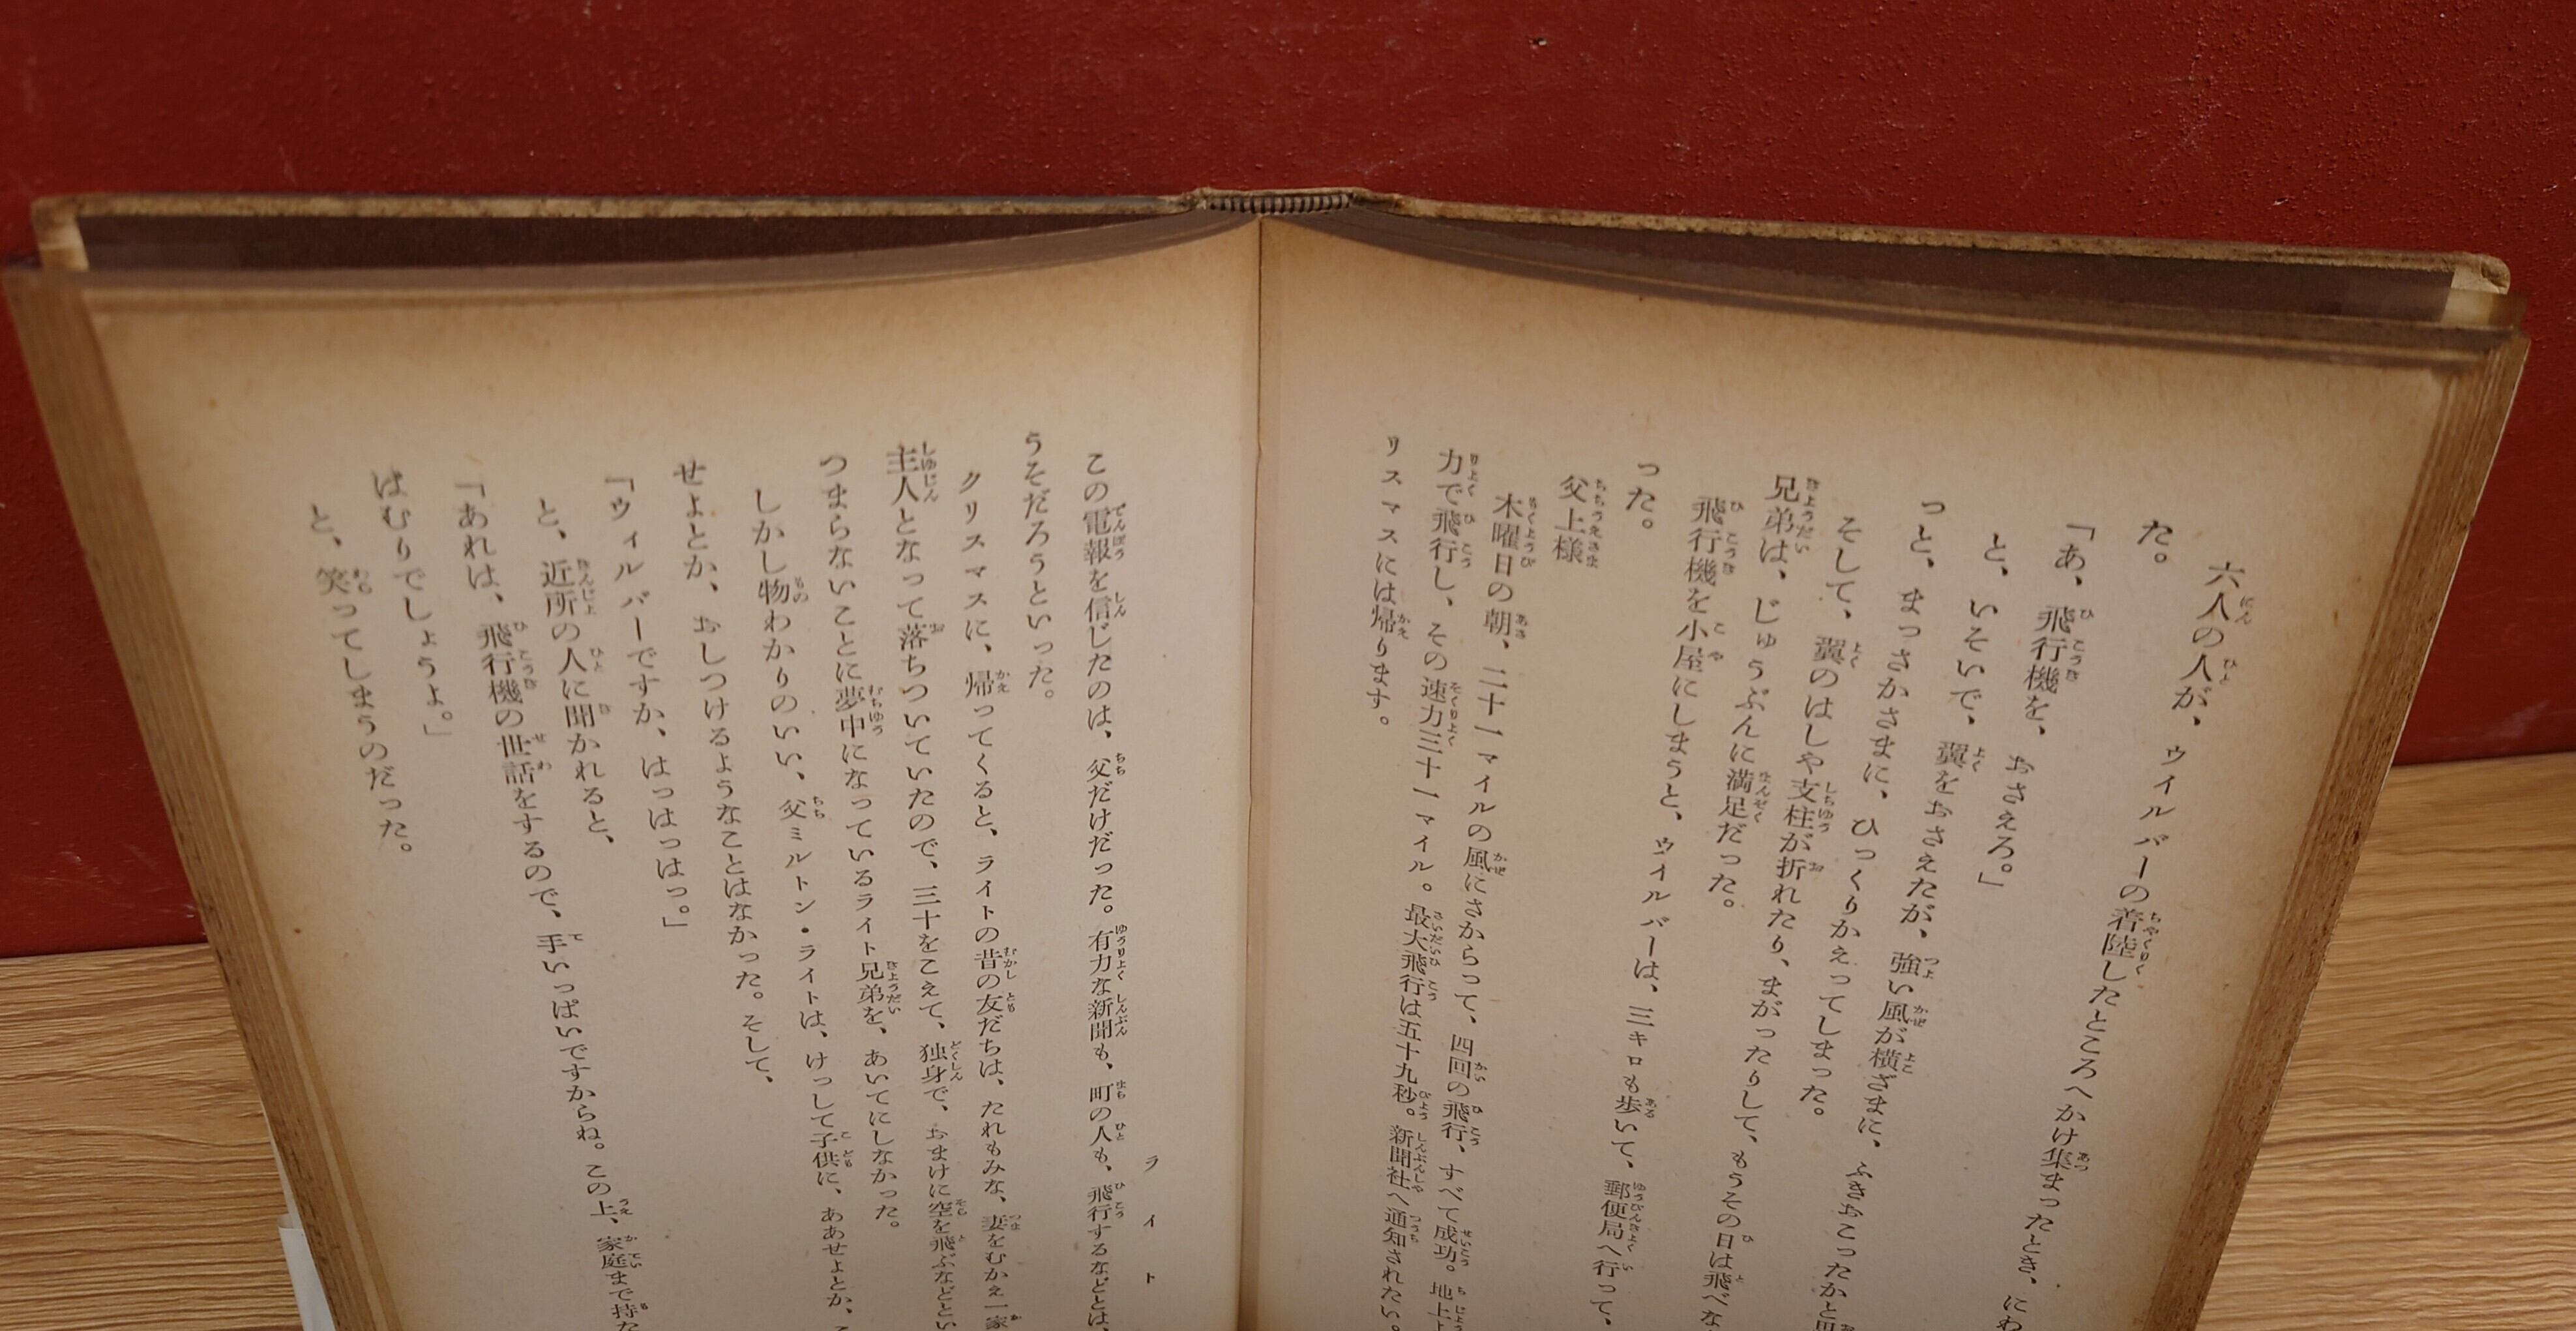 六人の人が、ウイルバーの着陸したところへかけ集まったとき、にわ
た。
「あ、飛行機を、おさえろ。」
と、いそいで、翼をおさえたが、強い風が横ざまに、ふきおこったかと思
っと、まっさかさまに、ひっくりかえってしまった。
そして、翼のはしや支柱が折れたり、まがったりして、もうその日は飛べな
兄弟は、じゅうぶんに満足だった。
飛行機を小屋にしまうと、ウイルバーは、三キロも歩いて、郵便局へ行って、
った。
父上様
木曜日の朝、二十一マイルの風にさからって、四回の飛行、すべて成功。地上よ
力で飛行し、その速力三十一マイル。最大飛行は五十九秒。新聞社へ通知されたい。
リスマスには帰ります。
ライト
この電報を信じたのは、父だけだった。有力な新聞も、町の人も、飛行するなどとは、
うそだろうといった。
クリスマスに、帰ってくると、ライトの昔の友だちは、たれもみな、妻をむかえ一家
主人となって落ちついていたので、三十をこえて、独身で、おまけに空を飛ぶなどとい
つまらないことに夢中になっているライト兄弟を、あいてにしなかった。
しかし物わかりのいい、父ミルトン・ライトは、けっして子供に、ああせよとか、こ
せよとか、おしつけるようなことはなかった。そして、
「ウィルバーですか、はっはっはっ。」
と、近所の人に聞かれると、
「あれは、飛行機の世話をするので、手いっぱいですからね。この上、家庭まで持た
はむりでしょうよ。」
と、笑ってしまうのだった。